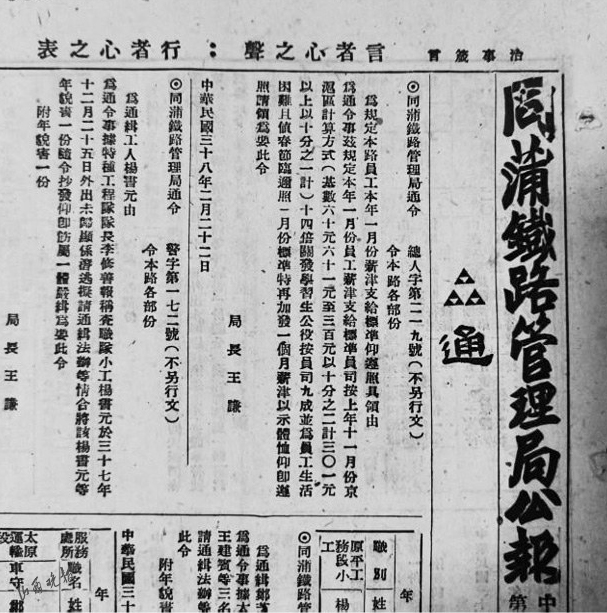 治事箴言
言者心之聲：行者心之表
同蒲鐵路管理局公報
中
第
通
◎同蒲鐵路管理局通令
總人字第二一九號（不另行文）
令本路各部份
為規定本路員工本年一月份薪津支給標準仰遵照具領由
為通令事茲規定本年一月份員工薪津支給標準員司按上年十一月份京
滬區計算方式（基數六十元六十一元至三百元以十分之二計三〇一元
以上以十分之一計）十四倍關發學習生公役按員司九成並為員工生活
困難且値春節臨邇照一月份標準特再加發一個月薪津以示體恤仰即遵
照請領為要此令
局長王謙
中華民國三十八年二月二十二日
◎同蒲鐵路管理局通令
警字第一七二號（不另行文）
令本路各部份
為通緝工人楊書元由
為通令事據特種工程隊隊長李修善報稱查職隊小工楊書元於三十七年
十二月二十五日外出未歸顯係潛逃擬請通緝法辦等情合將該楊書元等
年貌書一份隨令抄發仰即飭屬一體嚴緝為要此令
附年貌書一份
局長王謙
年
職別
姓
原平工務段小工
楊
◎同蒲鐵路管
為通緝鄭
為通令事據太
王建賓等三名
請通緝法辦等
此令
附年貌
中華民國三十
年
服務處所
職名
姓
太原運輸段
車守
鄭